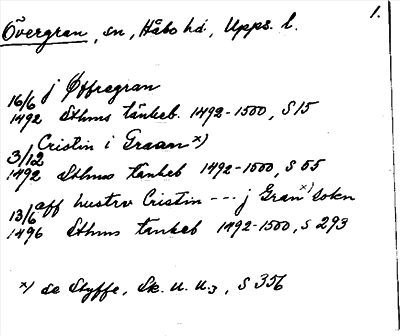 1.
Övergran, sn, Håbo hd, Upps. l.
16/6 j Øffregran
1492 Sthms tänkeb. 1492-1500, S 15
3/12 Cristin i Graan x)
1492 Sthms tänkeb 1492-1500, S 65
13/6 aff hustrv Cristin --- j Gran x) sokn
1496 Sthms tänkeb 1492-1500, S 293
x) se Styffe, Sk. u. u.3, S 356